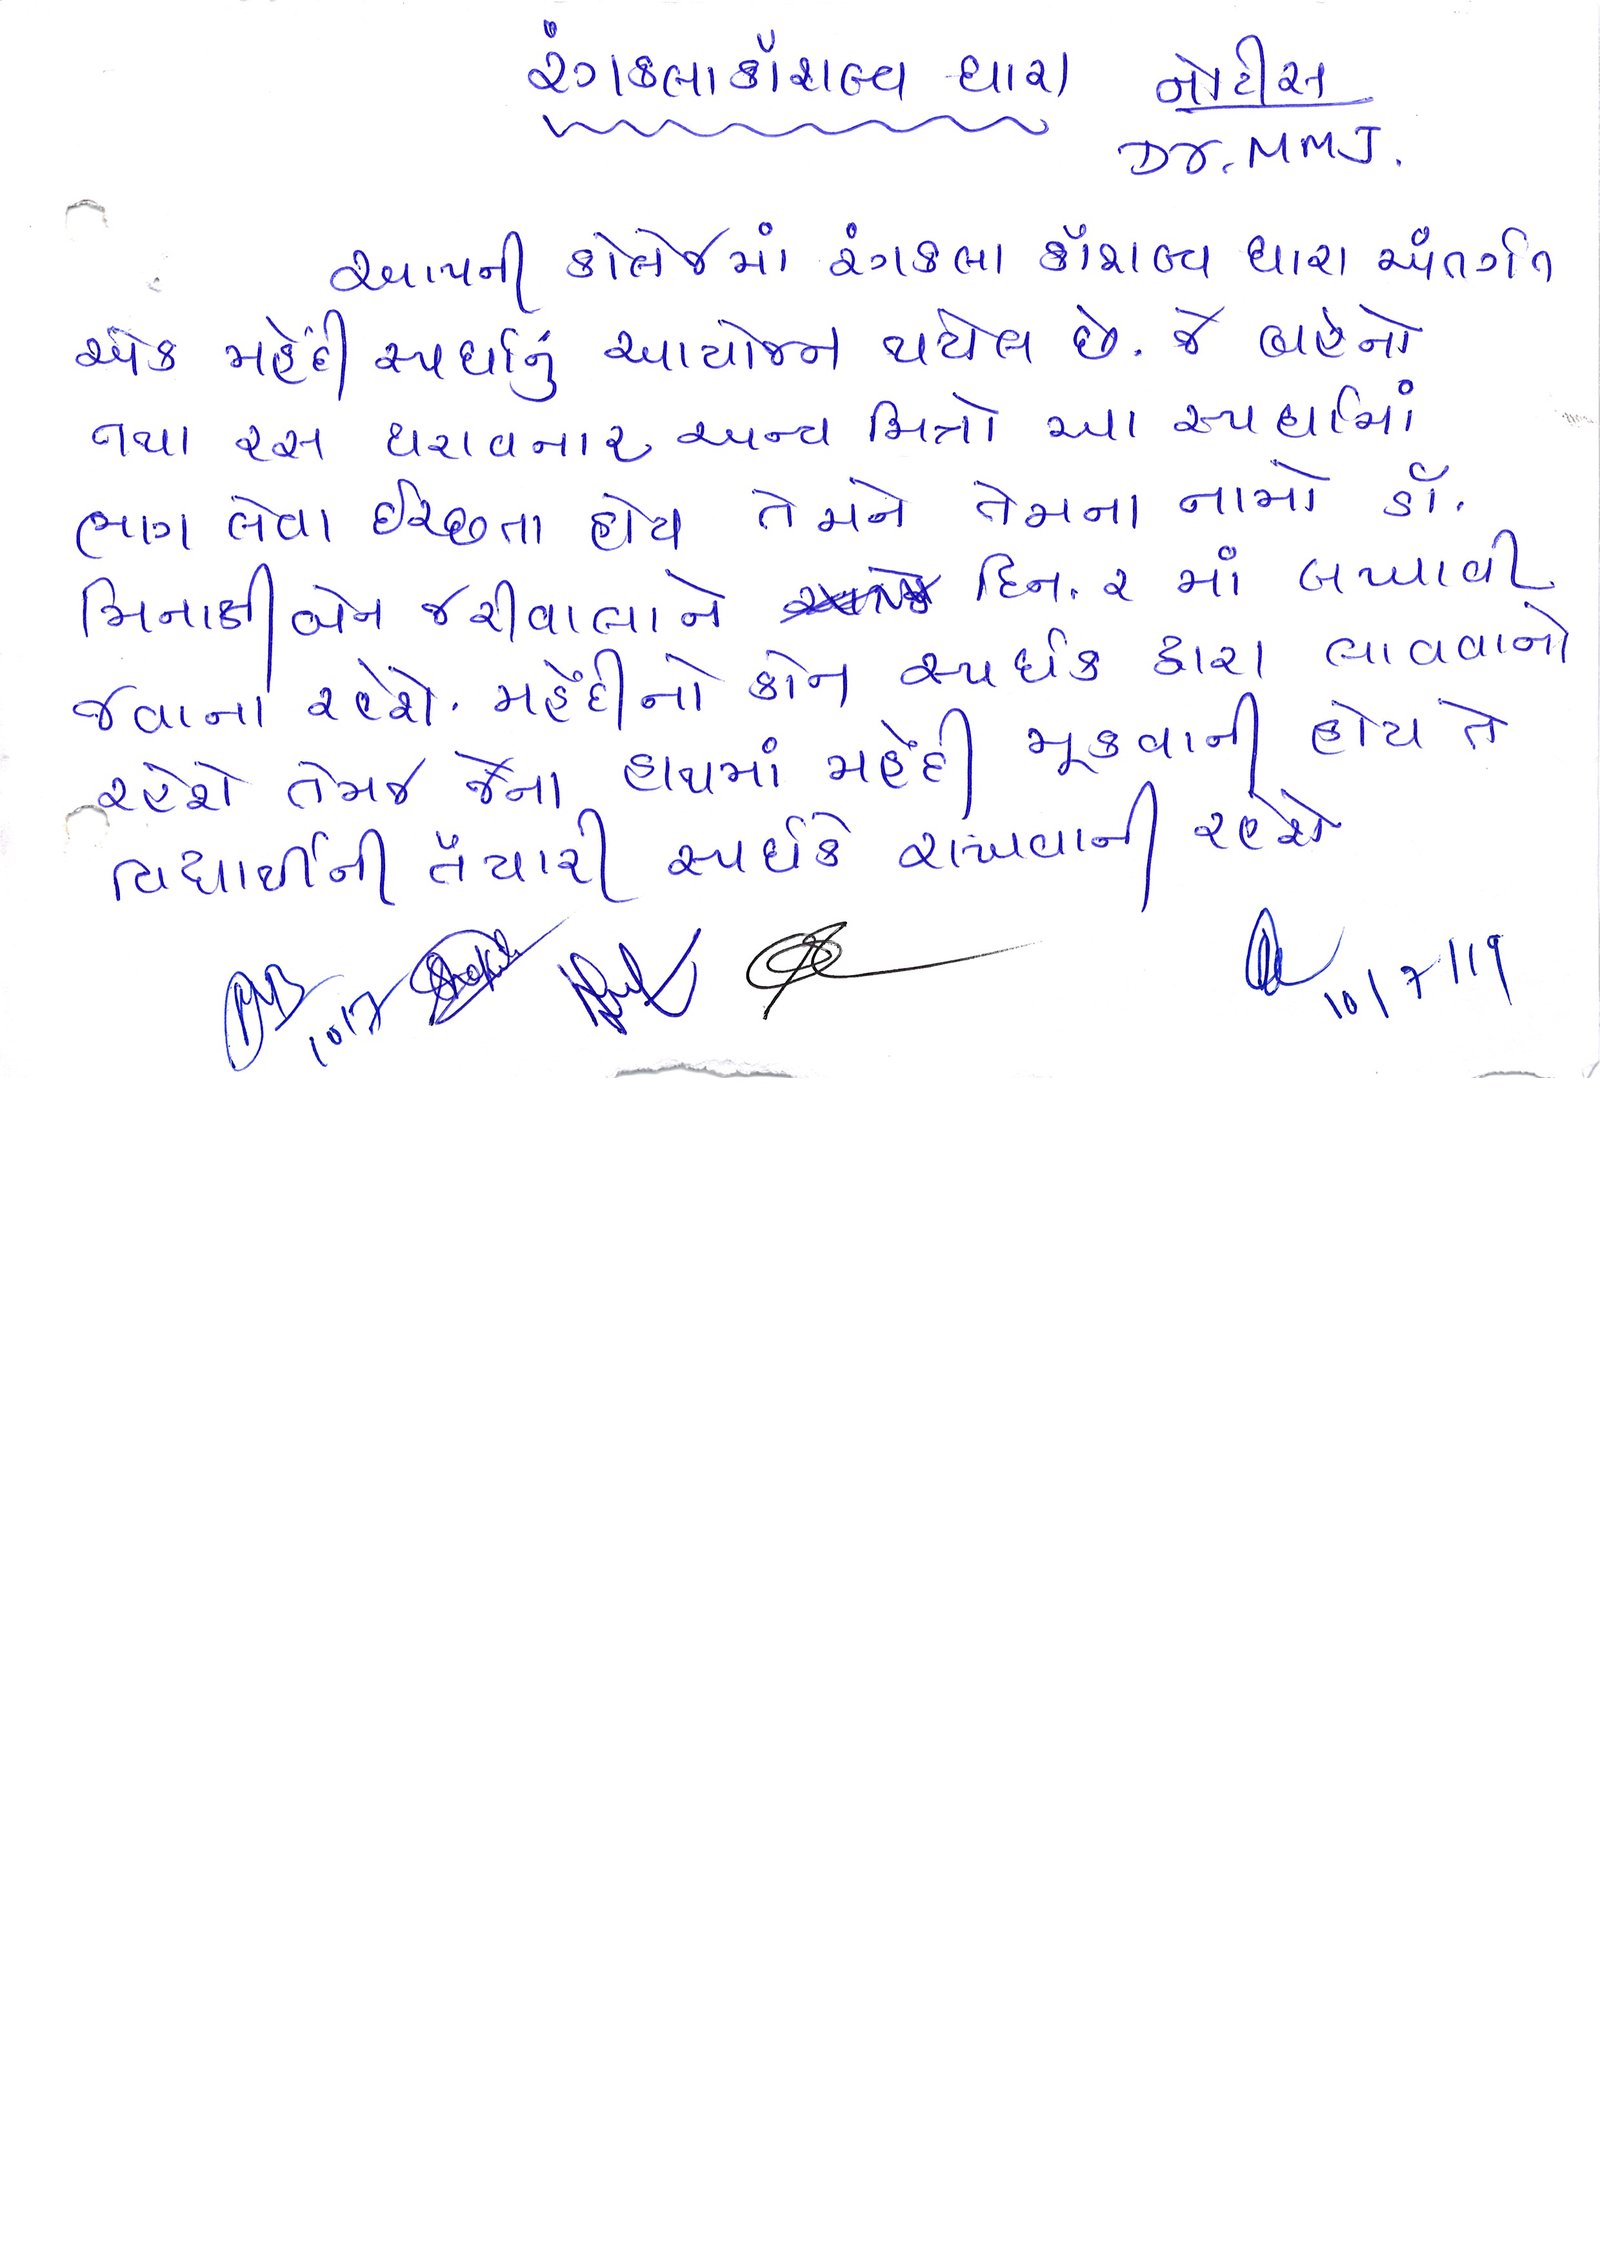 રંગકલાકૌશલ્ય ધારા નોટીસ
Dr. MMJ.
આપની કોલેજમાં રંગકલા કૌશલ્ય ધારા અંતર્ગત
એક મહેંદી સ્પર્ધાનું આયોજન થયેલ છે. જે બહેનો
તથા રસ ધરાવનાર અન્ય મિત્રો આ સ્પર્ધામાં
ભાગ લેવા ઈચ્છતા હોય તેમને તેમના નામો ડૉ.
મિનાક્ષીબેન જરીવાલાને દિન. ૨ માં લખાવી
જવાના રહેશે. મહેંદીનો કોન સ્પર્ધક દ્વારા લાવવાનો
રહેશે તેમજ જેના હાથમાં મહેંદી મૂકવાની હોય તે
વિદ્યાર્થીની તૈયારી સ્પર્ધકે રાખવાની રહેશે
10/7 10/7/19